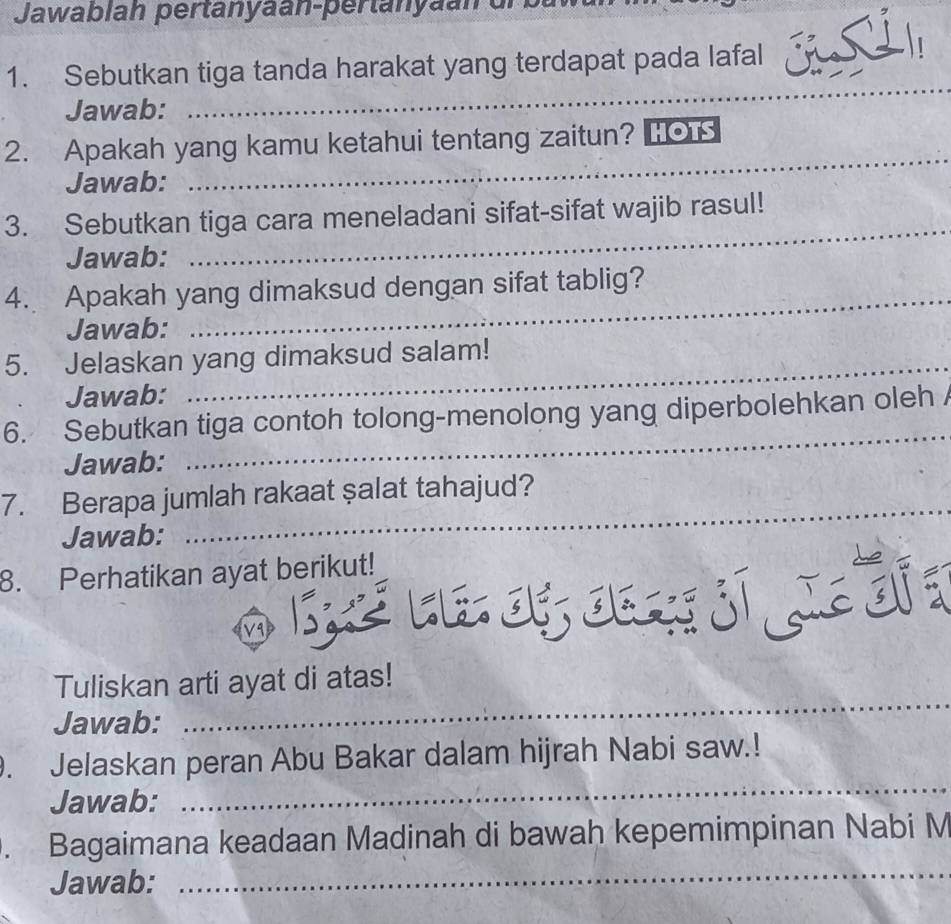 Jawablah pertanyaan-pertanyaan di
1. Sebutkan tiga tanda harakat yang terdapat pada lafal الْحٰكِمِيْنَ!
Jawab:
2. Apakah yang kamu ketahui tentang zaitun? HOTS
Jawab:
3. Sebutkan tiga cara meneladani sifat-sifat wajib rasul!
Jawab:
4. Apakah yang dimaksud dengan sifat tablig?
Jawab:
5. Jelaskan yang dimaksud salam!
Jawab:
6. Sebutkan tiga contoh tolong-menolong yang diperbolehkan oleh
Jawab:
7. Berapa jumlah rakaat ṣalat tahajud?
Jawab:
8. Perhatikan ayat berikut!
لَّكَۖ عَسٰٓى اَنْ يَّبْعَثَكَ رَبُّكَ مَقَامًا مَّحْمُوْدًا ﴿٧٩﴾
Tuliskan arti ayat di atas!
Jawab:
. Jelaskan peran Abu Bakar dalam hijrah Nabi saw.!
Jawab:
. Bagaimana keadaan Madinah di bawah kepemimpinan Nabi M
Jawab: